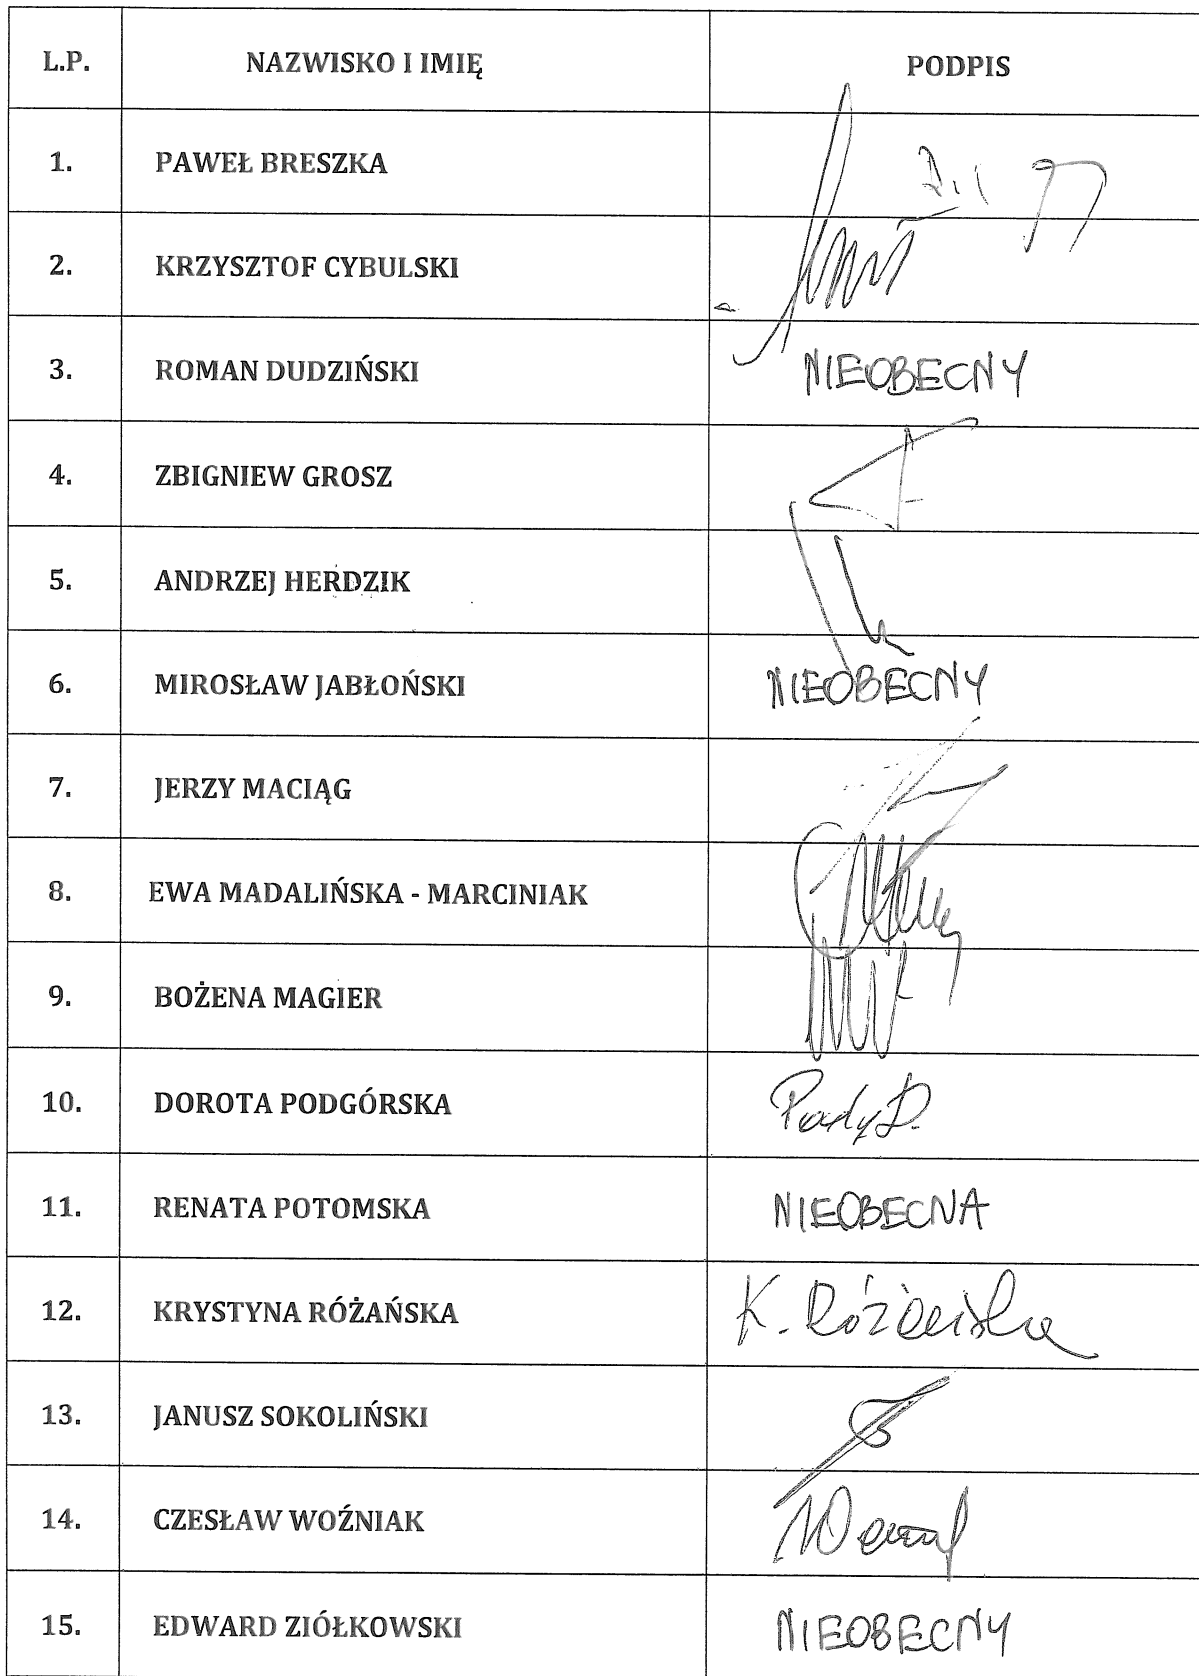 L.P. NAZWISKO I IMIĘ PODPIS
1. PAWEŁ BRESZKA
2. KRZYSZTOF CYBULSKI
3. ROMAN DUDZIŃSKI NIEOBECNY
4. ZBIGNIEW GROSZ
5. ANDRZEJ HERDZIK
6. MIROSŁAW JABŁOŃSKI NIEOBECNY
7. JERZY MACIĄG
8. EWA MADALIŃSKA - MARCINIAK
9. BOŻENA MAGIER
10. DOROTA PODGÓRSKA
11. RENATA POTOMSKA NIEOBECNA
12. KRYSTYNA RÓŻAŃSKA K. Różańska
13. JANUSZ SOKOLIŃSKI
14. CZESŁAW WOŹNIAK
15. EDWARD ZIÓŁKOWSKI NIEOBECNY